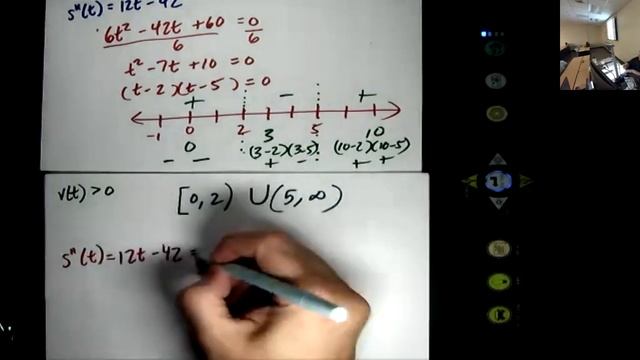 s"(t) = 12t - 42
6t² - 42t + 60 = 0
6 6
t² - 7t + 10 = 0
(t - 2)(t - 5) = 0
+ - +
-1 0 2 3 5 10
0 (3-2)(3-5) (10-2)(10-5)
- - + - + +
v(t) > 0 [0, 2) ∪ (5, ∞)
s"(t) = 12t - 42 =